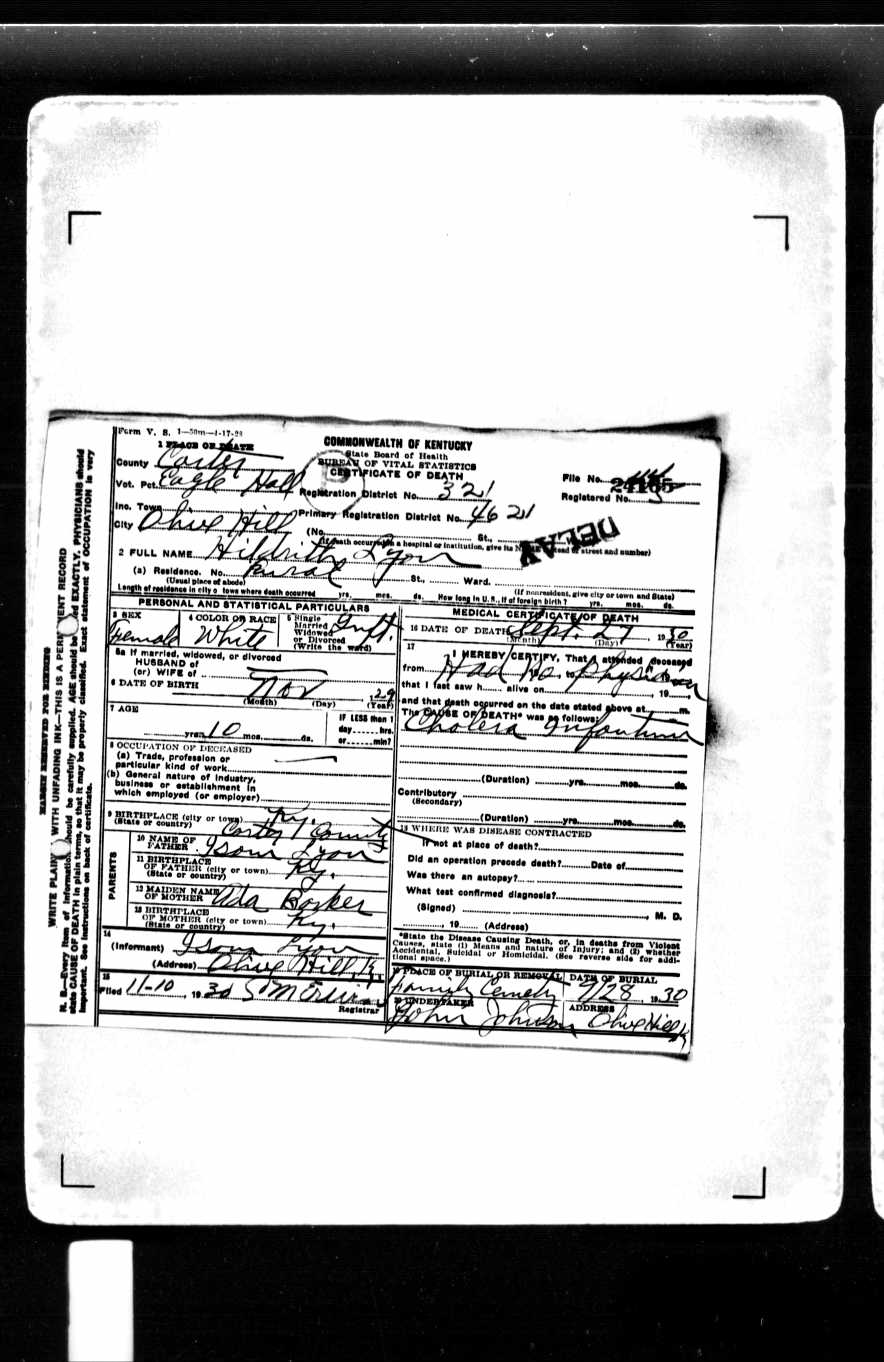 Form V. S. 1—50m—4-17-29
COMMONWEALTH OF KENTUCKY
State Board of Health
BUREAU OF VITAL STATISTICS
CERTIFICATE OF DEATH
1 PLACE OF DEATH
County Carter
Vot. Pct. Eagle Hall
Inc. Town
City Olive Hill
Registration District No. 321
Primary Registration District No. 4621
File No. 24165
Registered No.
(No. St.,
DELAY
2 FULL NAME Hildrith Lyon
(a) Residence. No. Rural St., Ward.
(Usual place of abode) (If nonresident, give city or town and State)
Length of residence in city or town where death occurred yrs. mos. ds. How long in U. S., if of foreign birth? yrs. mos. ds.
PERSONAL AND STATISTICAL PARTICULARS
3 SEX Female
4 COLOR OR RACE White
5 Single
Married
Widowed
or Divorced
(Write the word) Inft.
5a If married, widowed, or divorced
HUSBAND of
(or) WIFE of
6 DATE OF BIRTH Nov , 1929
(Month) (Day) (Year)
7 AGE
yrs. 10 mos. ds.
IF LESS than 1
day hrs.
or min?
8 OCCUPATION OF DECEASED
(a) Trade, profession or
particular kind of work
(b) General nature of industry,
business or establishment in
which employed (or employer)
9 BIRTHPLACE (city or town) Ky.
(State or country) Carter County
PARENTS
10 NAME OF
FATHER Isom Lyon
11 BIRTHPLACE
OF FATHER (city or town) Ky.
(State or country)
12 MAIDEN NAME
OF MOTHER Ada Barker
13 BIRTHPLACE
OF MOTHER (city or town) Ky.
(State or country)
14
(Informant) Isom Lyon
(Address) Olive Hill Ky
15
Filed 11-10, 1930
Registrar
MEDICAL CERTIFICATE OF DEATH
16 DATE OF DEATH Sept. 27, 1930
(Month) (Day) (Year)
17
I HEREBY CERTIFY, That I attended deceased
from Had No physician
that I last saw h alive on , 19
and that death occurred on the date stated above at m.
The CAUSE OF DEATH* was as follows:
Cholera Infantum
(Duration) yrs. mos. ds.
Contributory
(Secondary)
(Duration) yrs. mos. ds.
18 WHERE WAS DISEASE CONTRACTED
if not at place of death?
Did an operation precede death? Date of
Was there an autopsy?
What test confirmed diagnosis?
(Signed) , M. D.
, 19 (Address)
*State the Disease Causing Death, or, in deaths from Violent
Causes, state (1) Means and nature of Injury; and (2) whether
Accidental, Suicidal or Homicidal. (See reverse side for addi-
tional space.)
19 PLACE OF BURIAL OR REMOVAL DATE OF BURIAL
Family Cemetry 9/28, 1930
20 UNDERTAKER ADDRESS
John Johnson Olive Hill K
MARGIN RESERVED FOR BINDING
WRITE PLAINLY WITH UNFADING INK—THIS IS A PERMANENT RECORD
N. B.—Every item of information should be carefully supplied. AGE should be stated EXACTLY. PHYSICIANS should
state CAUSE OF DEATH in plain terms, so that it may be properly classified. Exact statement of OCCUPATION is very
important. See instructions on back of certificate.